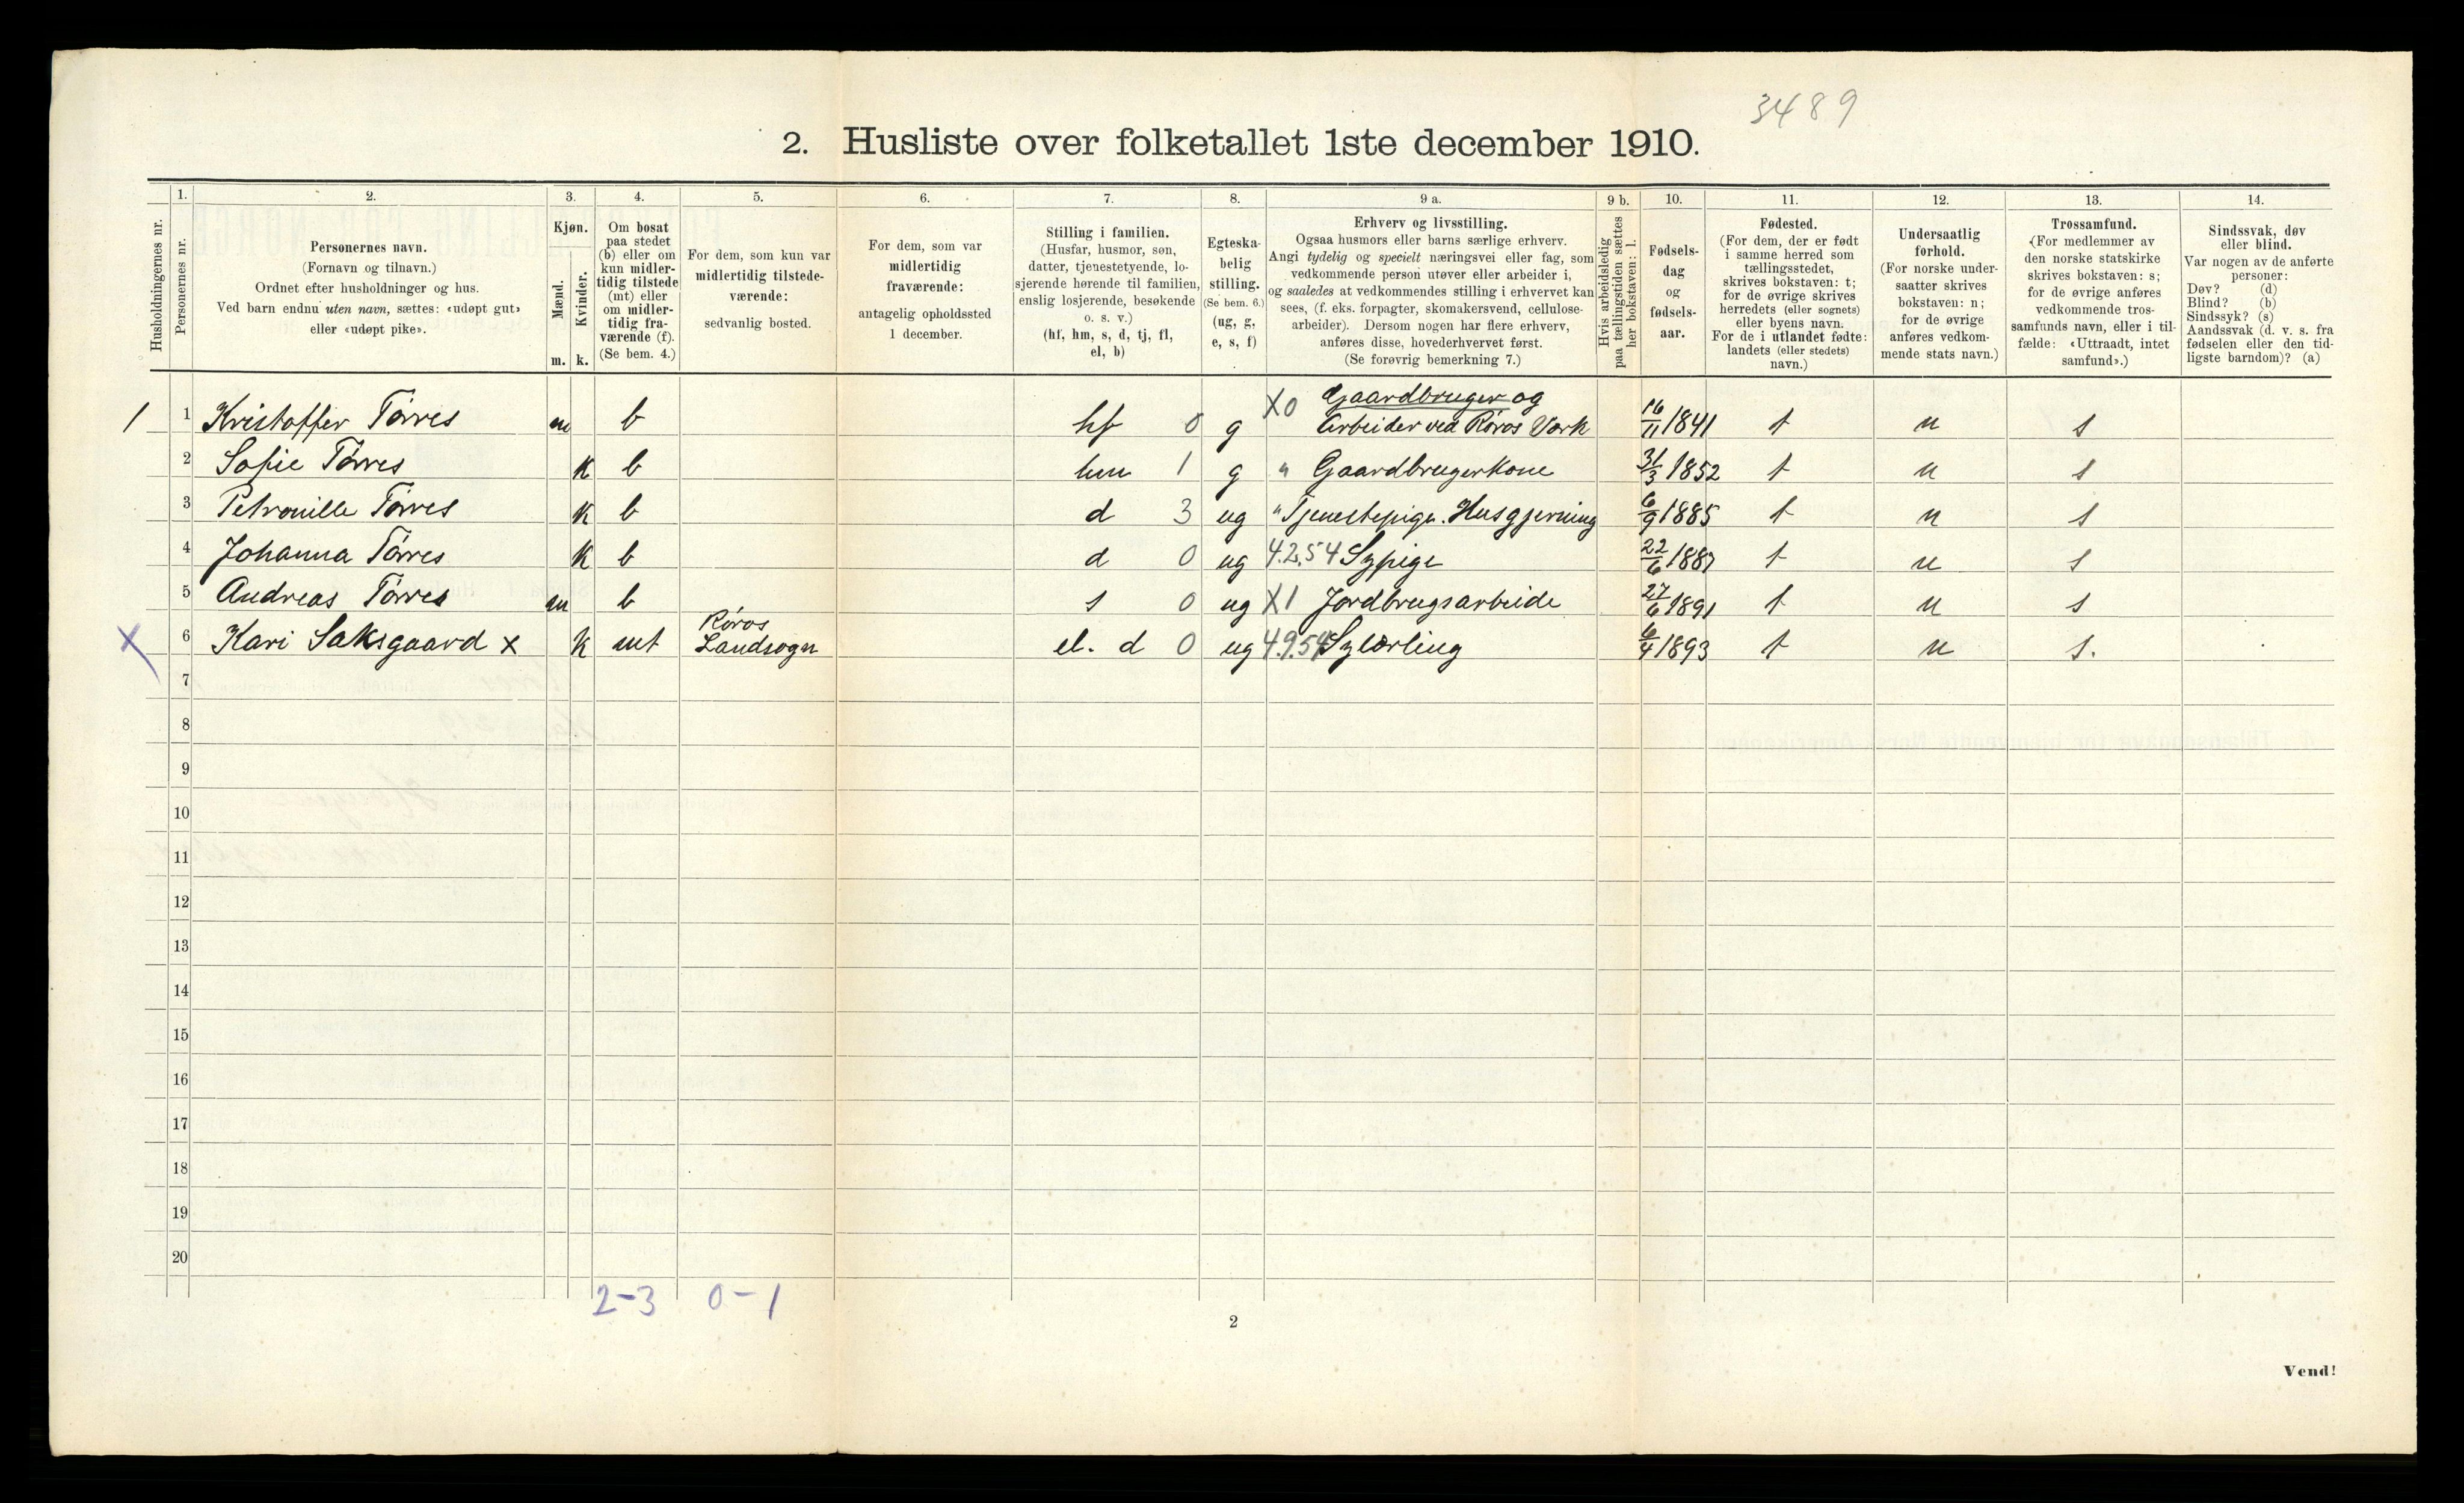 3489
2. Husliste over folketallet 1ste december 1910.
Husholdningernes nr.
1.
Personernes nr.
2.
Personernes navn.
(Fornavn og tilnavn.)
Ordnet efter husholdninger og hus.
Ved barn endnu uten navn, sættes: «udøpt gut»
eller «udøpt pike».
3.
Kjøn.
Mænd.
Kvinder.
m. k.
4.
Om bosat
paa stedet
(b) eller om
kun midler-
tidig tilstede
(mt) eller
om midler-
tidig fra-
værende (f).
(Se bem. 4.)
5.
For dem, som kun var
midlertidig tilstede-
værende:
sedvanlig bosted.
6.
For dem, som var
midlertidig
fraværende:
antagelig opholdssted
1 december.
7.
Stilling i familien.
(Husfar, husmor, søn,
datter, tjenestetyende, lo-
sjerende hørende til familien,
enslig losjerende, besøkende
o. s. v.)
(hf, hm, s, d, tj, fl,
el, b)
8.
Egteska-
belig
stilling.
(Se bem. 6.)
(ug, g,
e, s, f)
9 a.
Erhverv og livsstilling.
Ogsaa husmors eller barns særlige erhverv.
Angi tydelig og specielt næringsvei eller fag, som
vedkommende person utøver eller arbeider i,
og saaledes at vedkommendes stilling i erhvervet kan
sees, (f. eks. forpagter, skomakersvend, cellulose-
arbeider). Dersom nogen har flere erhverv,
anføres disse, hovederhvervet først.
(Se forøvrig bemerkning 7.)
9 b.
Hvis arbeidsledig
paa tællingstiden sættes
her bokstaven: l.
10.
Fødsels-
dag
og
fødsels-
aar.
11.
Fødested.
(For dem, der er født
i samme herred som
tællingsstedet,
skrives bokstaven: t;
for de øvrige skrives
herredets (eller sognets)
eller byens navn.
For de i utlandet fødte:
landets (eller stedets)
navn.)
12.
Undersaatlig
forhold.
(For norske under-
saatter skrives
bokstaven: n;
for de øvrige
anføres vedkom-
mende stats navn.)
13.
Trossamfund.
(For medlemmer av
den norske statskirke
skrives bokstaven: s;
for de øvrige anføres
vedkommende tros-
samfunds navn, eller i til-
fælde: «Uttraadt, intet
samfund».)
14.
Sindssvak, døv
eller blind.
Var nogen av de anførte
personer:
Døv? (d)
Blind? (b)
Sindssyk? (s)
Aandssvak (d. v. s. fra
fødselen eller den tid-
ligste barndom)? (a)
1 1 Kristoffer Tørres m b hf 0 g X0 Gaardbruger og
Arbeider ved Røros Værk 16/11 1841 t n s
2 Sofie Tørres k b hm 1 g " Gaardbrugerkone 31/3 1852 t n s
3 Petronille Tørres k b d 3 ug " Tjenestepige. Husgjerning 6/9 1885 t n s
4 Johanna Tørres k b d 0 ug 4.2.54 Sypige 22/6 1887 t n s
5 Andreas Tørres m b s 0 ug X1 Jordbrugsarbeide 27/6 1891 t n s
X 6 Kari Saksgaard x k mt Røros
Landsogn el. d 0 ug 4.9.54 Sylærling 6/4 1893 t n s.
7
8
9
10
11
12
13
14
15
16
17
18
19
20
2-3 0-1
2
Vend!